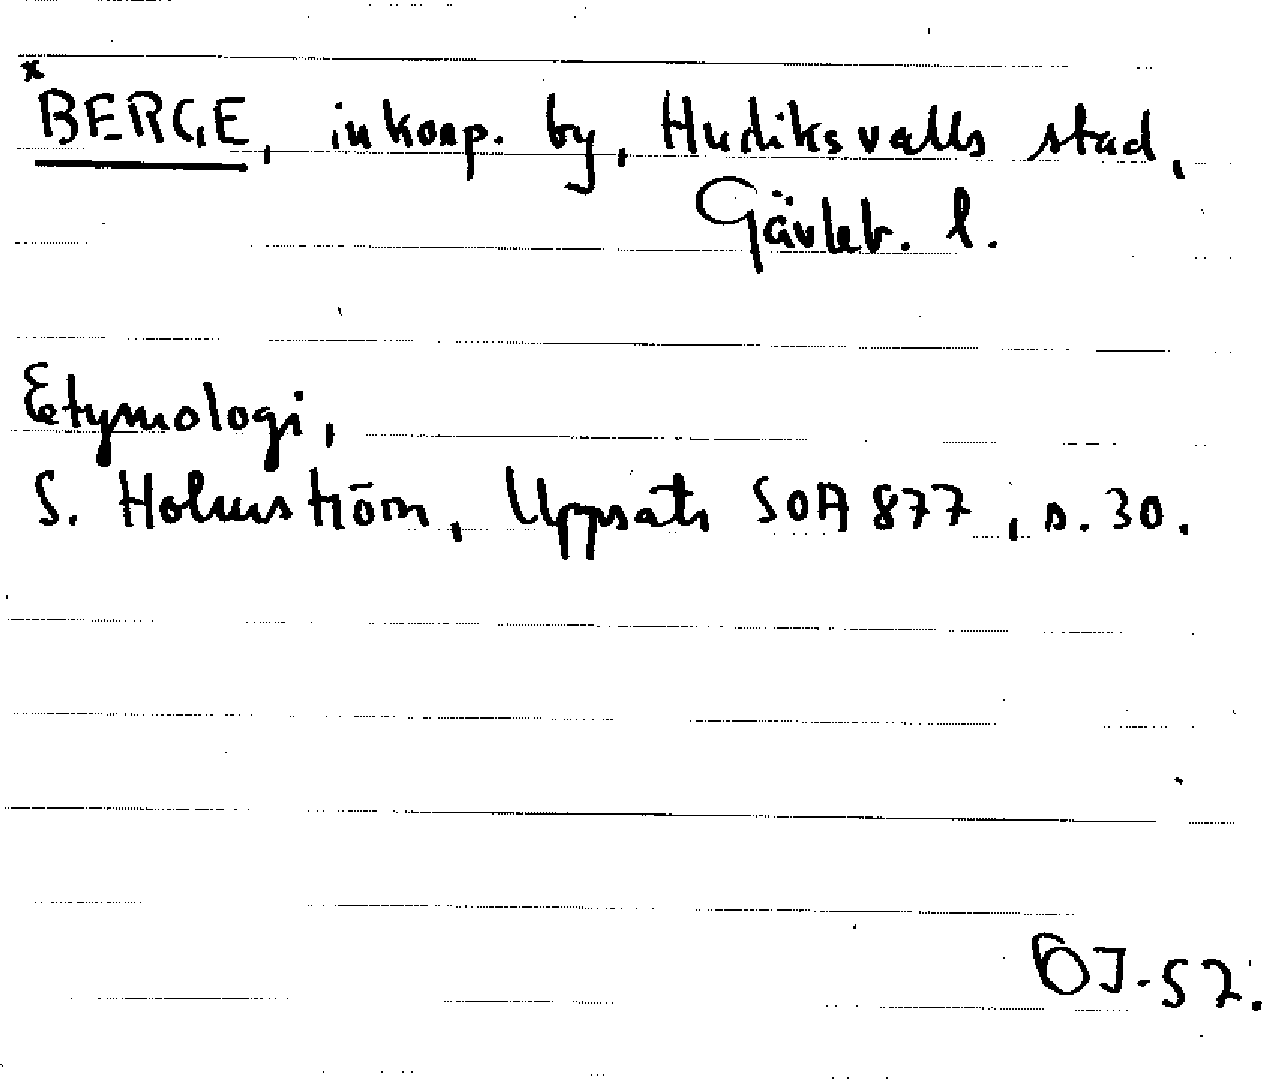 x
BERGE, inkorp. by, Hudiksvalls stad,
Gävleb. l.
Etymologi,
S. Holmström, Uppsats SOA 877, s. 30.
OJ-52.